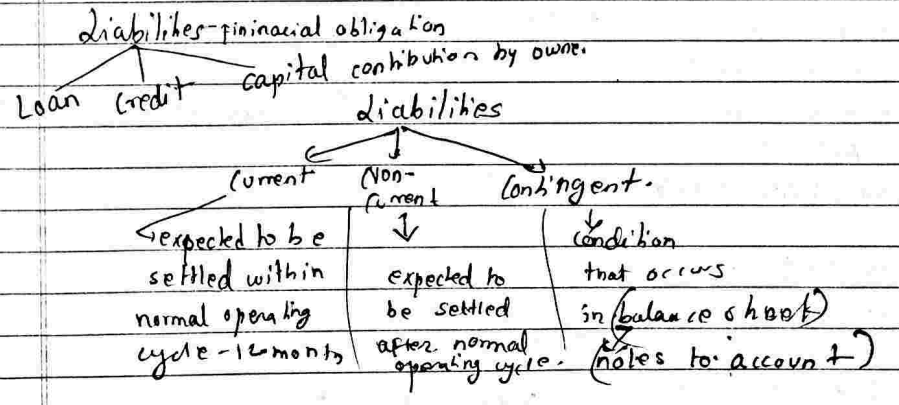 Liabilities-fininacial obligation
Loan Credit capital contibution by owner.
Liabilities
Current Non-current Contingent.
expected to be settled within normal operating cycle-12months
expected to be settled after normal operating cycle.
condition that occurs in (balance sheet) (notes to account)